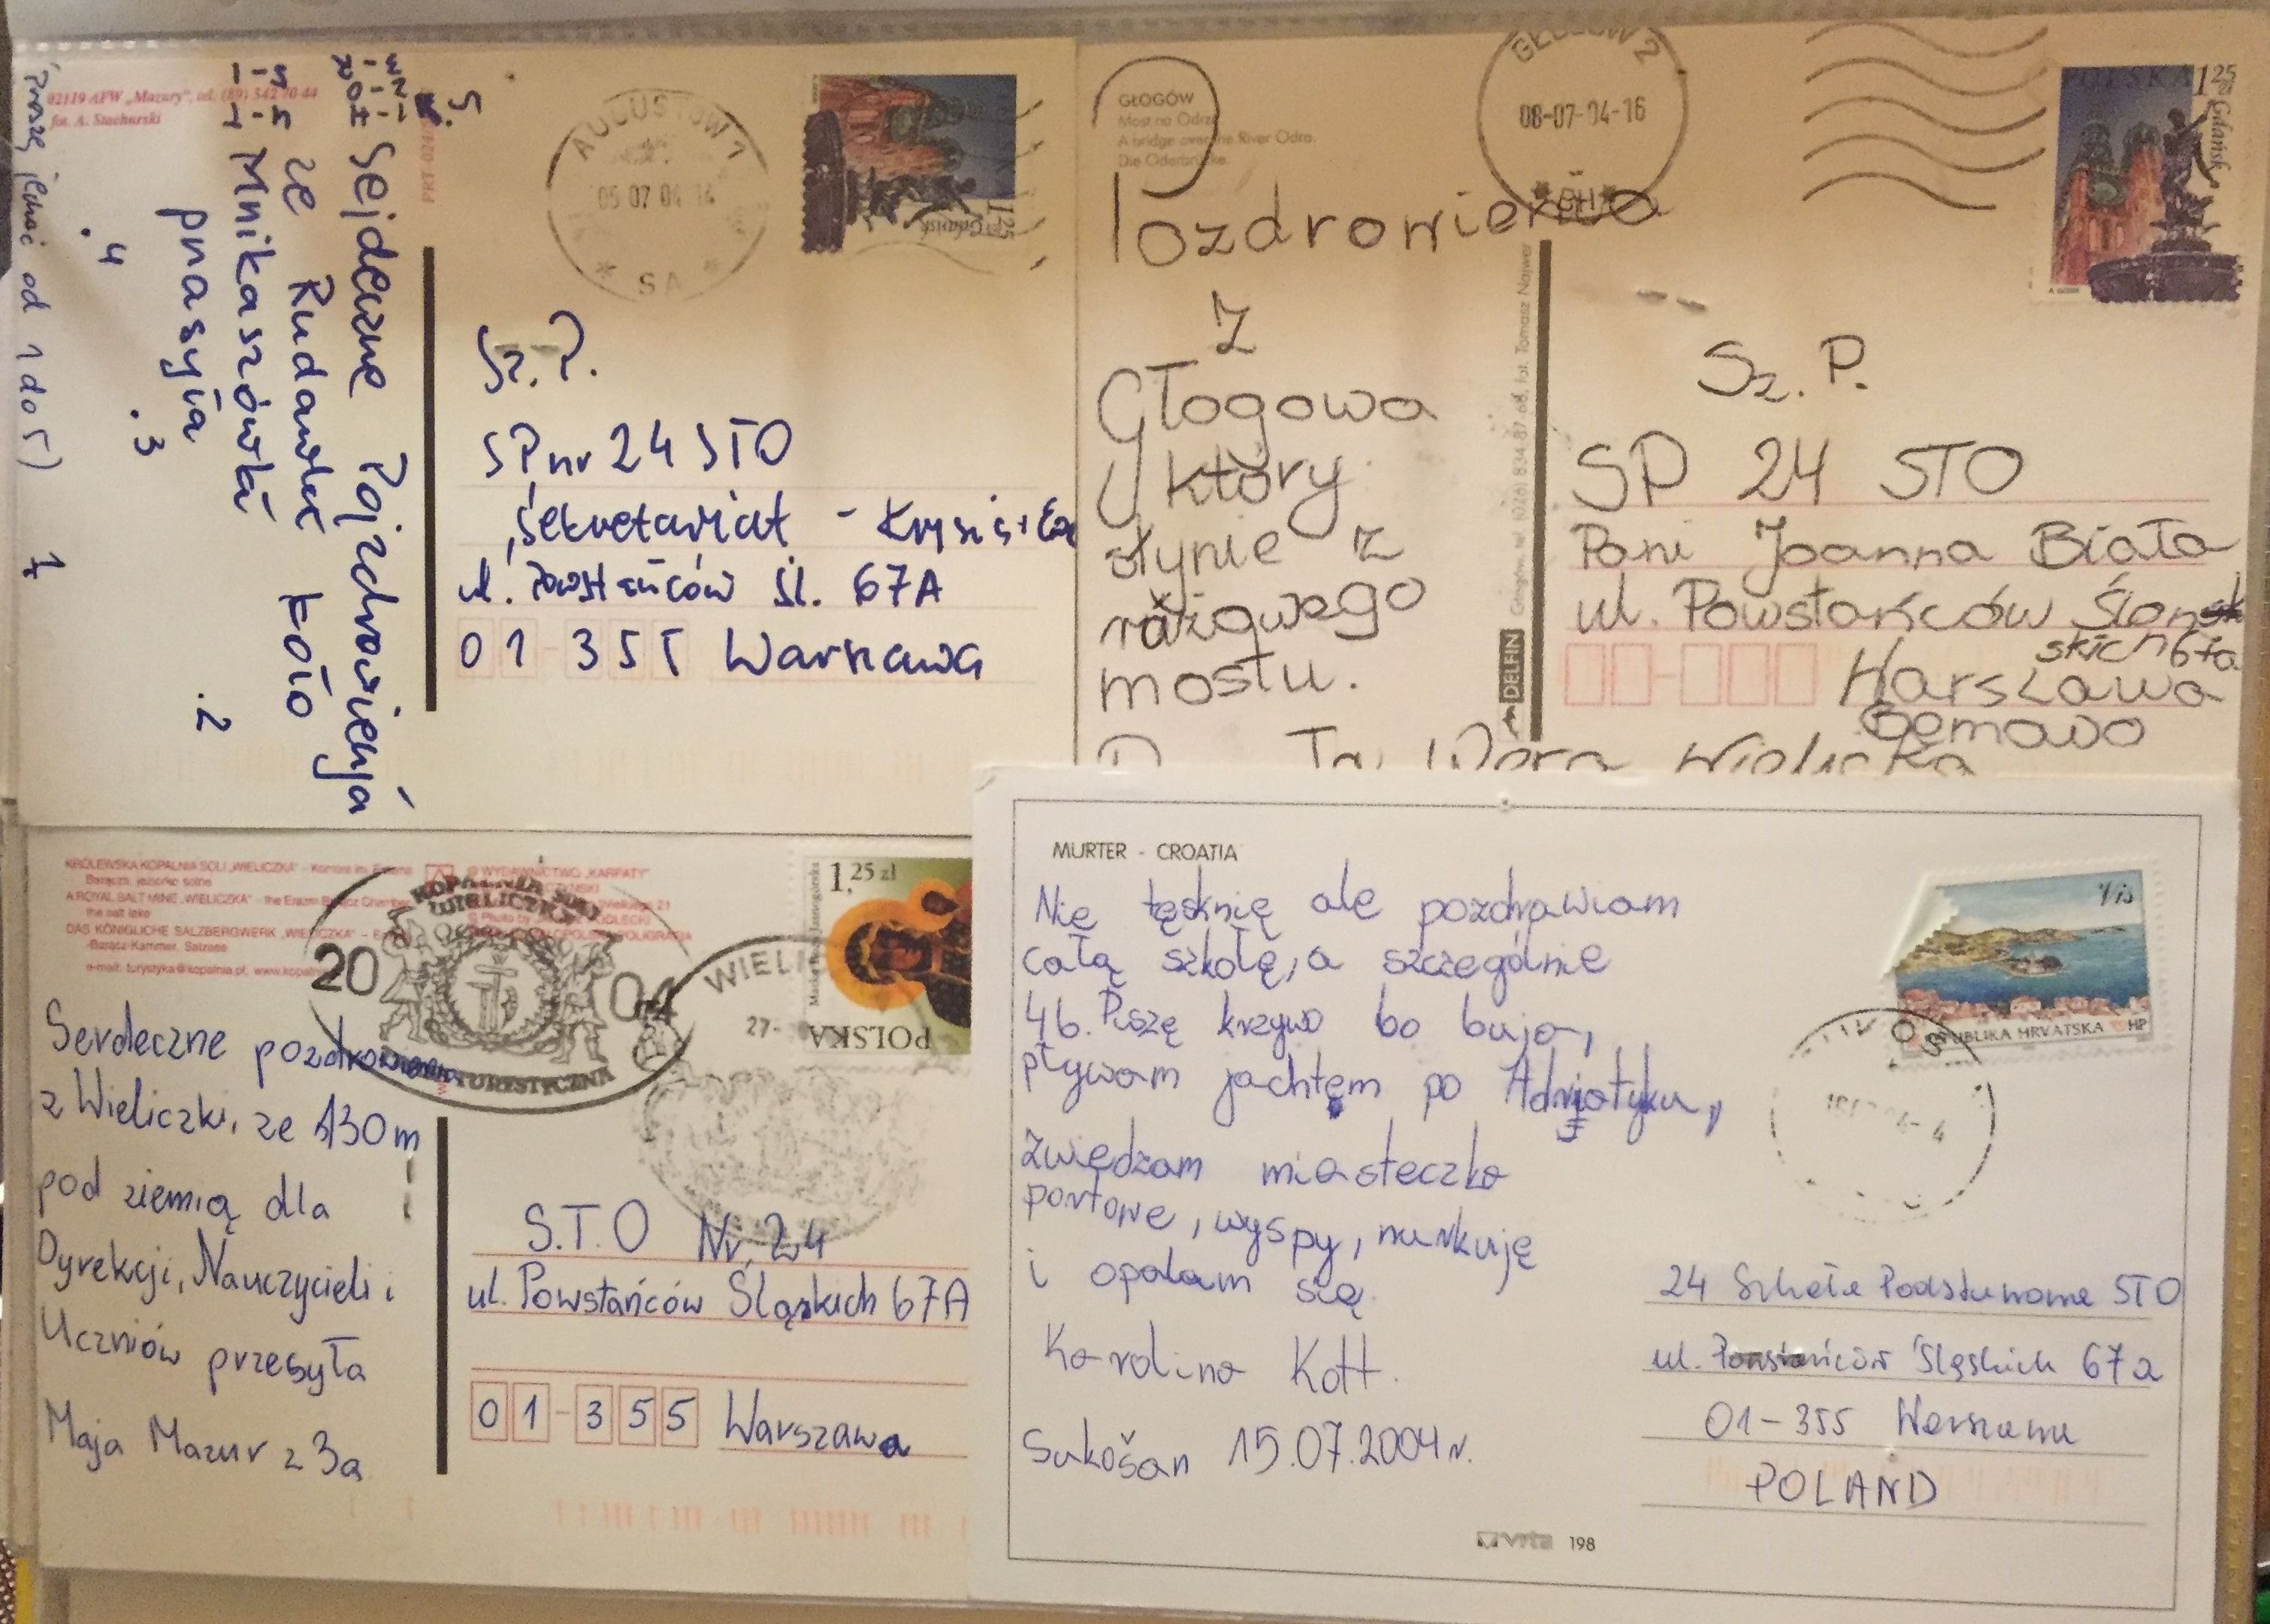 02119 AFW „Mazury", tel. (89) 542 70 44
fot. A. Stachurski
Sejdeczne Pojzdrowienja
ze Rudawki koło
Mnikaszówki
pnasyła
5.
.4
.3
.2
1
jechać od 1 do 5)
AUGUSTÓW 1
05 07 04 14
* SA *
1,25
Gdańsk
Sz. P.
SP nr 24 STO
Sekretariat -
ul. Powstańców Śl. 67A
01-355 Warszawa
GŁOGÓW
Most na Odrze
A bridge over the River Odra.
Die Oderbrücke.
GŁOGÓW 2
08-07-04-16
POLSKA 1,25 zł
Gdańsk
Pozdrowienia
z
Głogowa
który
słynie z
różowego
mostu.
Wielicka
DELFIN Głogów, tel. (076) 834-87-68, fot. Tomasz Najwer
Sz. P.
SP 24 STO
Pani Joanna Biała
ul. Powstańców Ślon
skich 67a
Warszawa
Bemowo
KRÓLEWSKA KOPALNIA SOLI „WIELICZKA" - Komora im. Erazma
Barącza: jezioro solne
A ROYAL SALT MINE „WIELICZKA" - the Erazm Barącz Chamber
the salt lake
DAS KÖNIGLICHE SALZBERGWERK „WIELICZKA" -
-Barącz-Kammer. Salzsee
e-mail: turystyka@kopalnia.pl, www.kopalnia
© WYDAWNICTWO „KARPATY"
KOPALNIA SOLI
WIELICZKA
20 04
TURYSTYCZNA
WIELI
27-
1,25 zł
POLSKA
Serdeczne pozdrowienia
z Wieliczki, ze 130 m
pod ziemią dla
Dyrekcji, Nauczycieli i
Uczniów przesyła
Maja Mazur z 3a
S.T.O Nr. 24
ul. Powstańców Śląskich 67A
01-355 Warszawa
MURTER - CROATIA
Nie tęsknię ale pozdrawiam
całą szkołę, a szczególnie
4b. Piszę krzywo bo buja,
pływam jachtem po Adriatyku,
zwiedzam miasteczka
portowe, wyspy, nurkuję
i opalam się.
Karolina Kott.
Sukošan 15.07.2004 r.
Vis
REPUBLIKA HRVATSKA HP
24 Szkoła Podstawowa STO
ul. Powstańców Śląskich 67a
01-355 Warszawa
POLAND
198